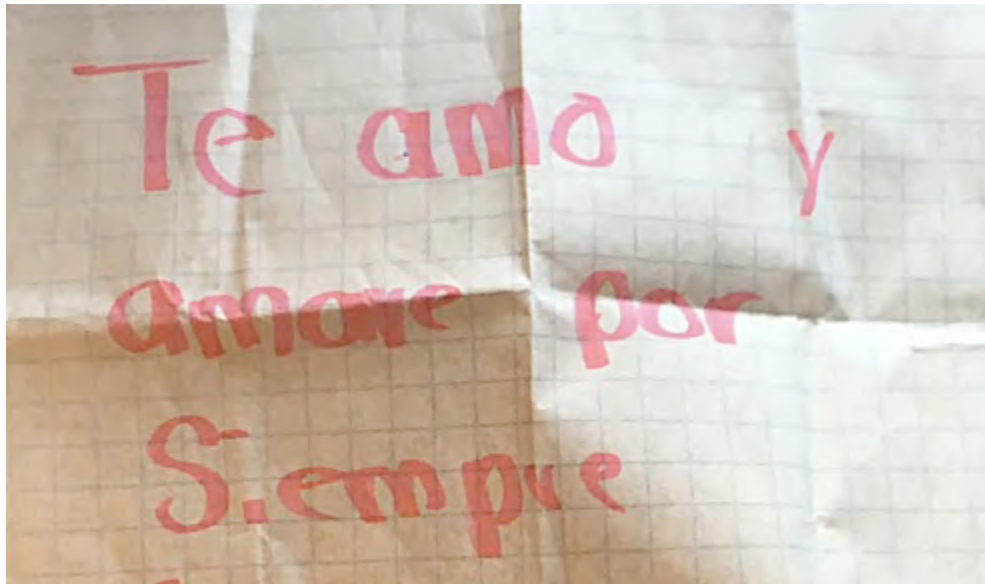 Te amo y
amare por
Siempre